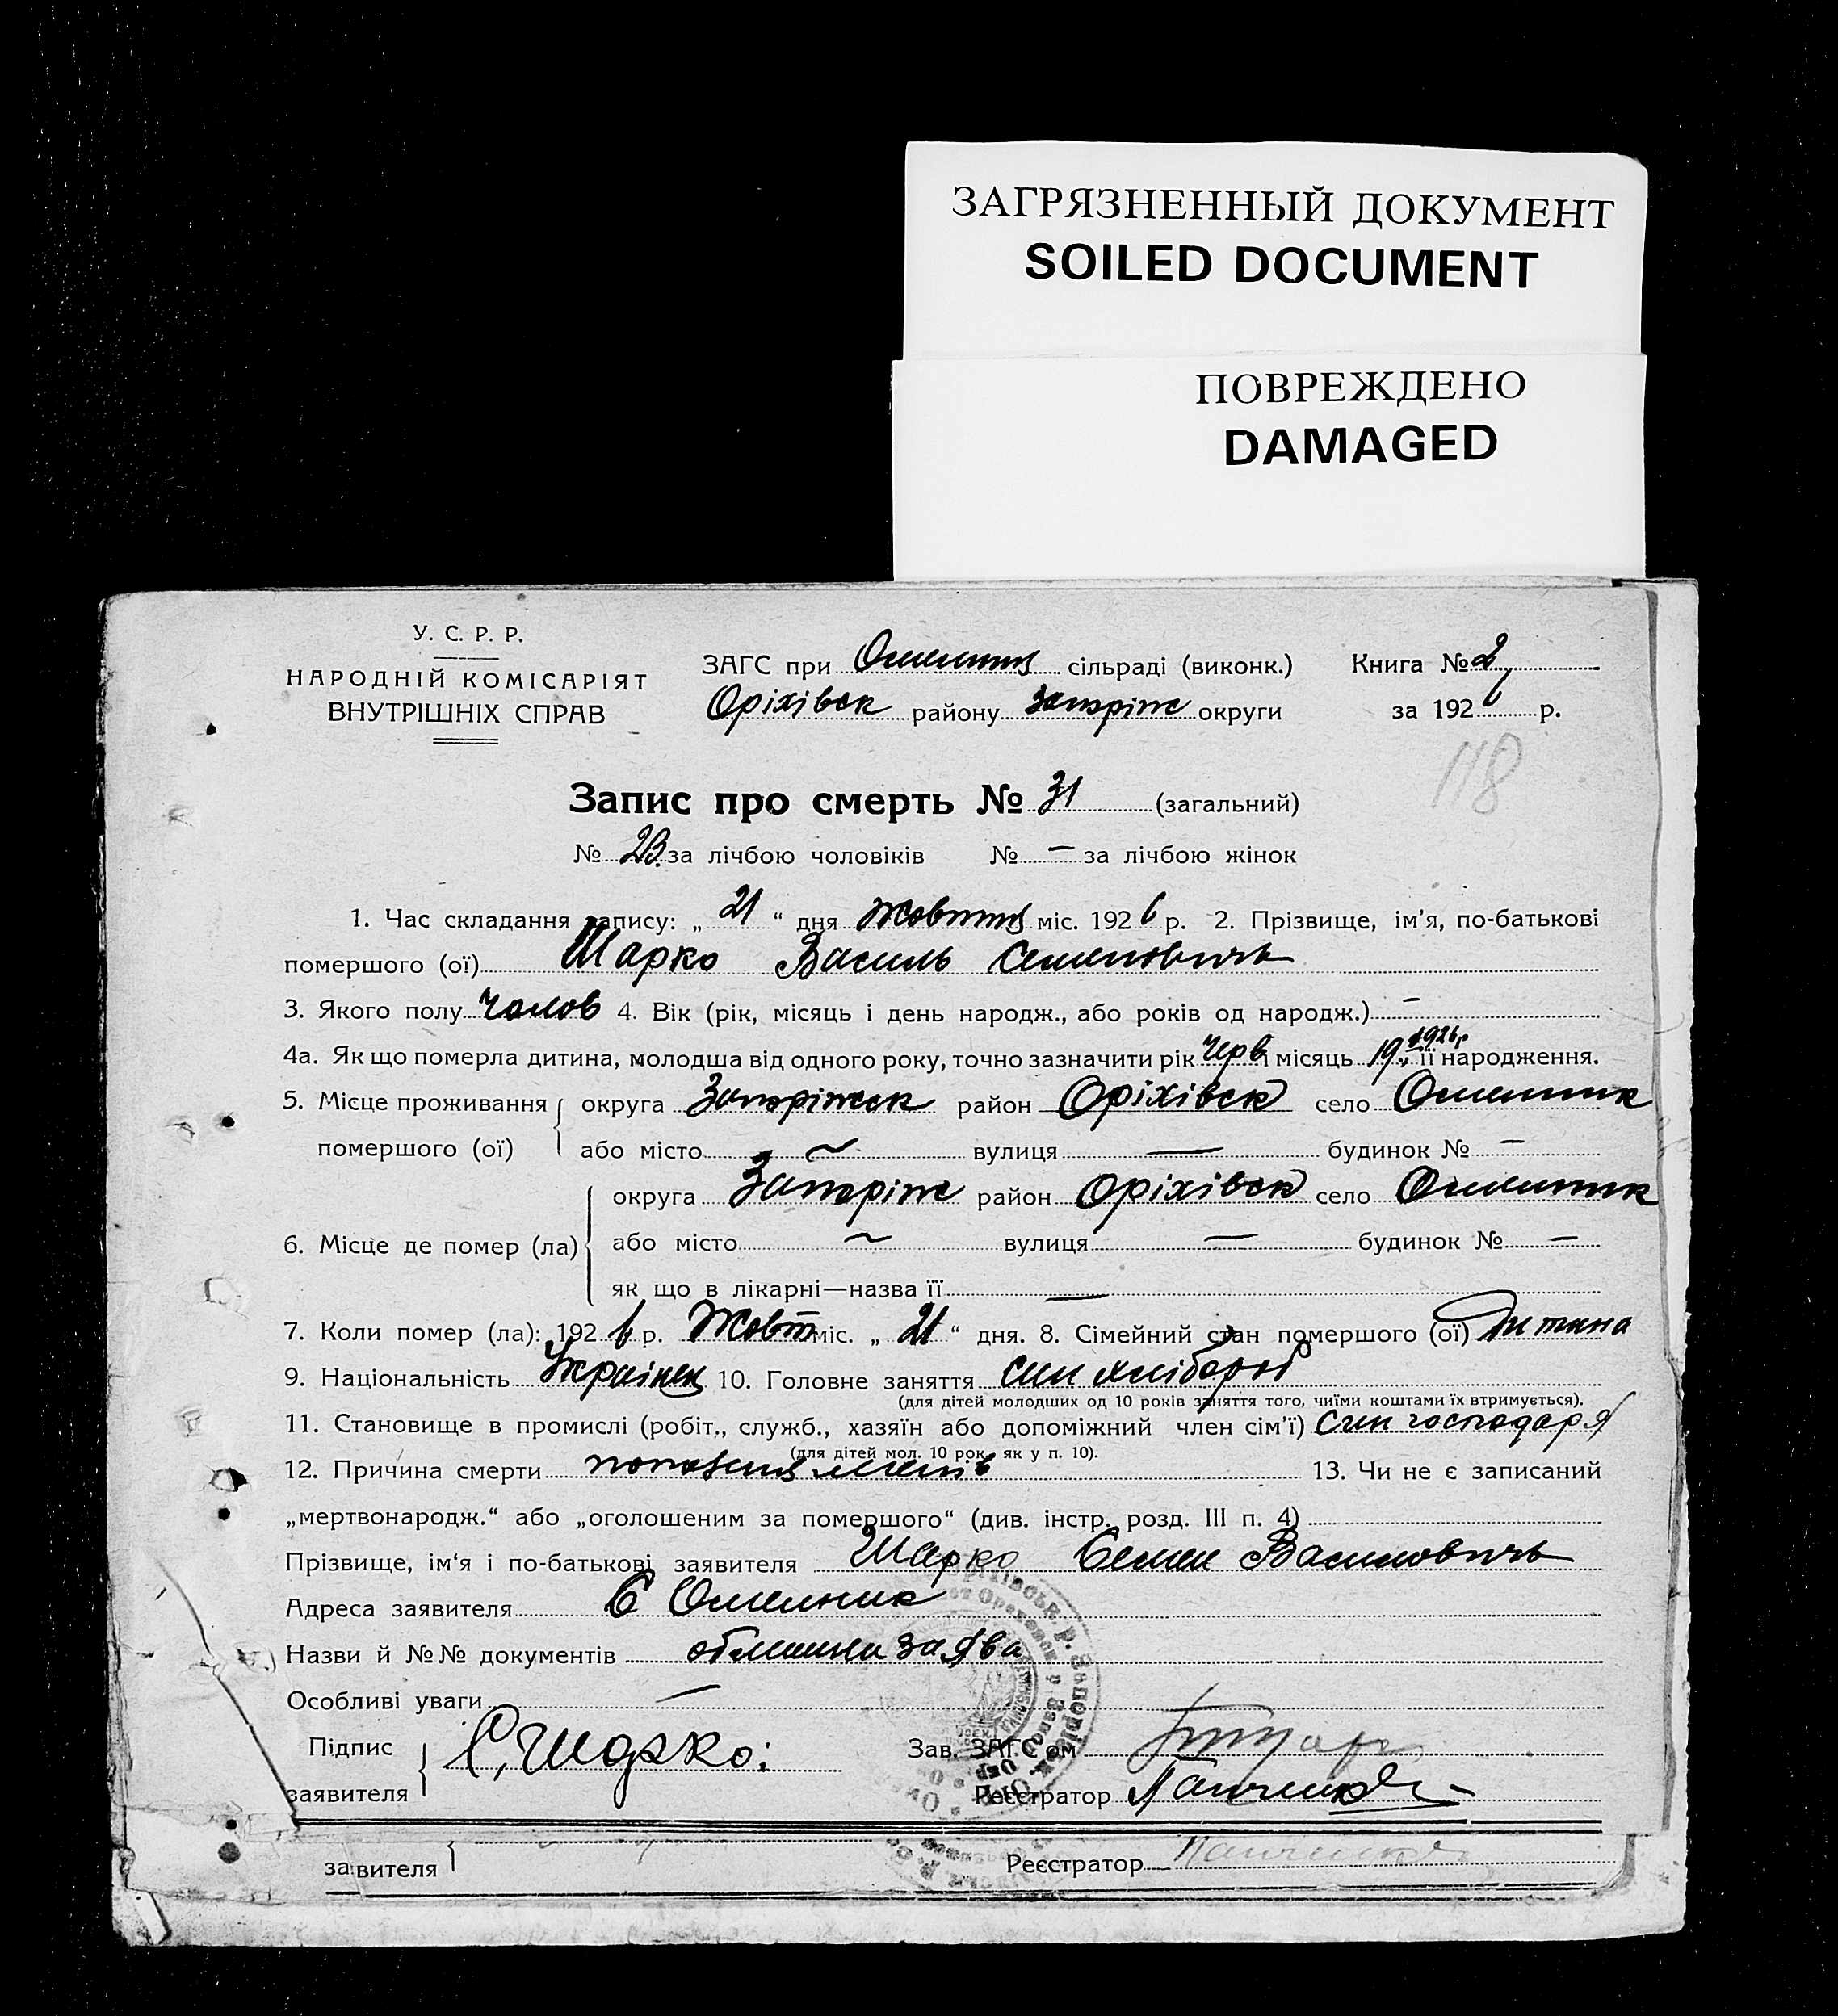 ЗАГРЯЗНЕННЫЙ ДОКУМЕНТ
SOILED DOCUMENT
ПОВРЕЖДЕНО
DAMAGED
У. С. Р. Р.
НАРОДНІЙ КОМІСАРІЯТ
ВНУТРІШНІХ СПРАВ
ЗАГС при сільраді (виконк.)
Оріхівськ району Запоріж округи
Книга № 2
за 1926 р.
118
Запис про смерть № 31 (загальний)
№ 23 за лічбою чоловіків № — за лічбою жінок
1. Час складання запису: „ 21 “ дня Жовтня міс. 1926 р. 2. Прізвище, ім'я, по-батькові
помершого (ої) Шарко Василь Семеновичь
3. Якого полу Чолов 4. Вік (рік, місяць і день народж., або років од народж.) —
4а. Як що померла дитина, молодша від одного року, точно зазначити рік Черв і місяць 19, 1926р її народження.
5. Місце проживання округа Запоріжск район Оріхівск село Омельник
помершого (ої) або місто ~ вулиця — будинок № —
округа Запоріж район Оріхівск село Омельник
6. Місце де помер (ла) або місто ~ вулиця — будинок № —
як що в лікарні—назва її —
7. Коли помер (ла): 1926 р. Жовт міс. „ 21 “ дня. 8. Сімейний стан помершого (ої) Дитина
9. Національність Украінец 10. Головне заняття син хлібороб
(для дітей молодших од 10 років заняття того, чиїми коштами їх втримується).
11. Становище в промислі (робіт., служб., хазяїн або допоміжний член сім'ї) син господаря
(для дітей мол. 10 рок. як у п. 10).
12. Причина смерти 13. Чи не є записаний
„мертвонародж.“ або „оголошеним за помершого“ (див. інстр. розд. III п. 4)
Прізвище, ім'я і по-батькові заявителя Шарко Семен Василовичь
Адреса заявителя С Омелник
Назви й №№ документів заява
Особливі уваги —
Підпис С. Шарко. Зав. ЗАГС'ом
заявителя Реєстратор Панченко
заявителя Реєстратор Панченко